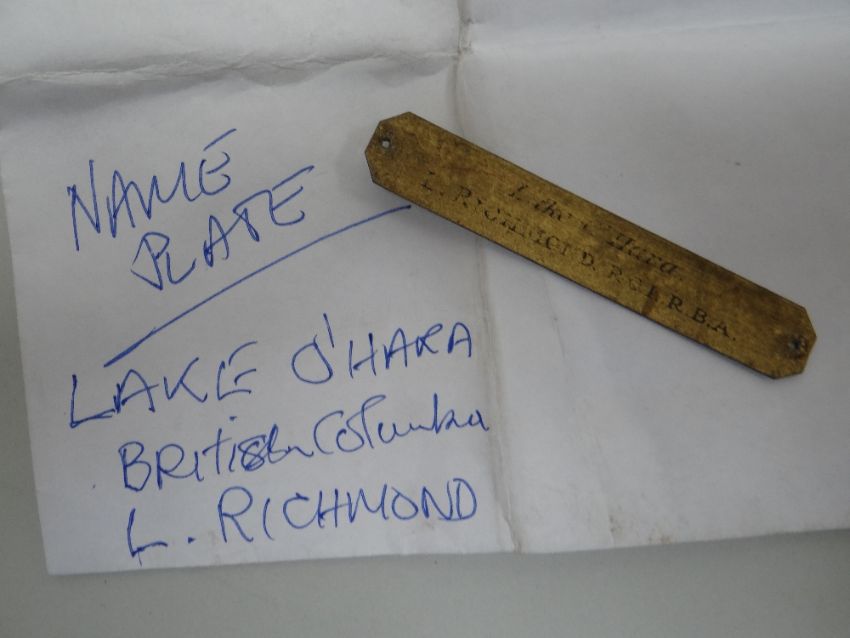 NAME
PLATE
LAKE O'HARA
BRITISH Columbia
L. RICHMOND
Lake O'Hara
L. RICHMOND. R.O.I. R.B.A.